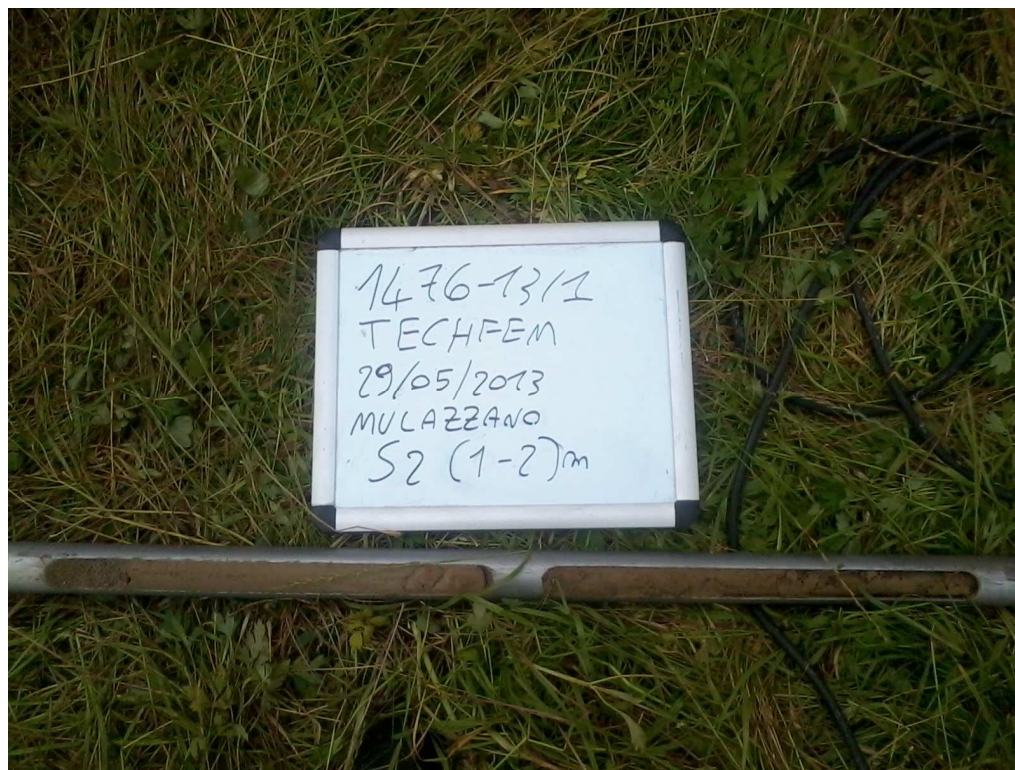 1476-13/1
TECHFEM
29/05/2013
MULAZZANO
S2 (1-2)m